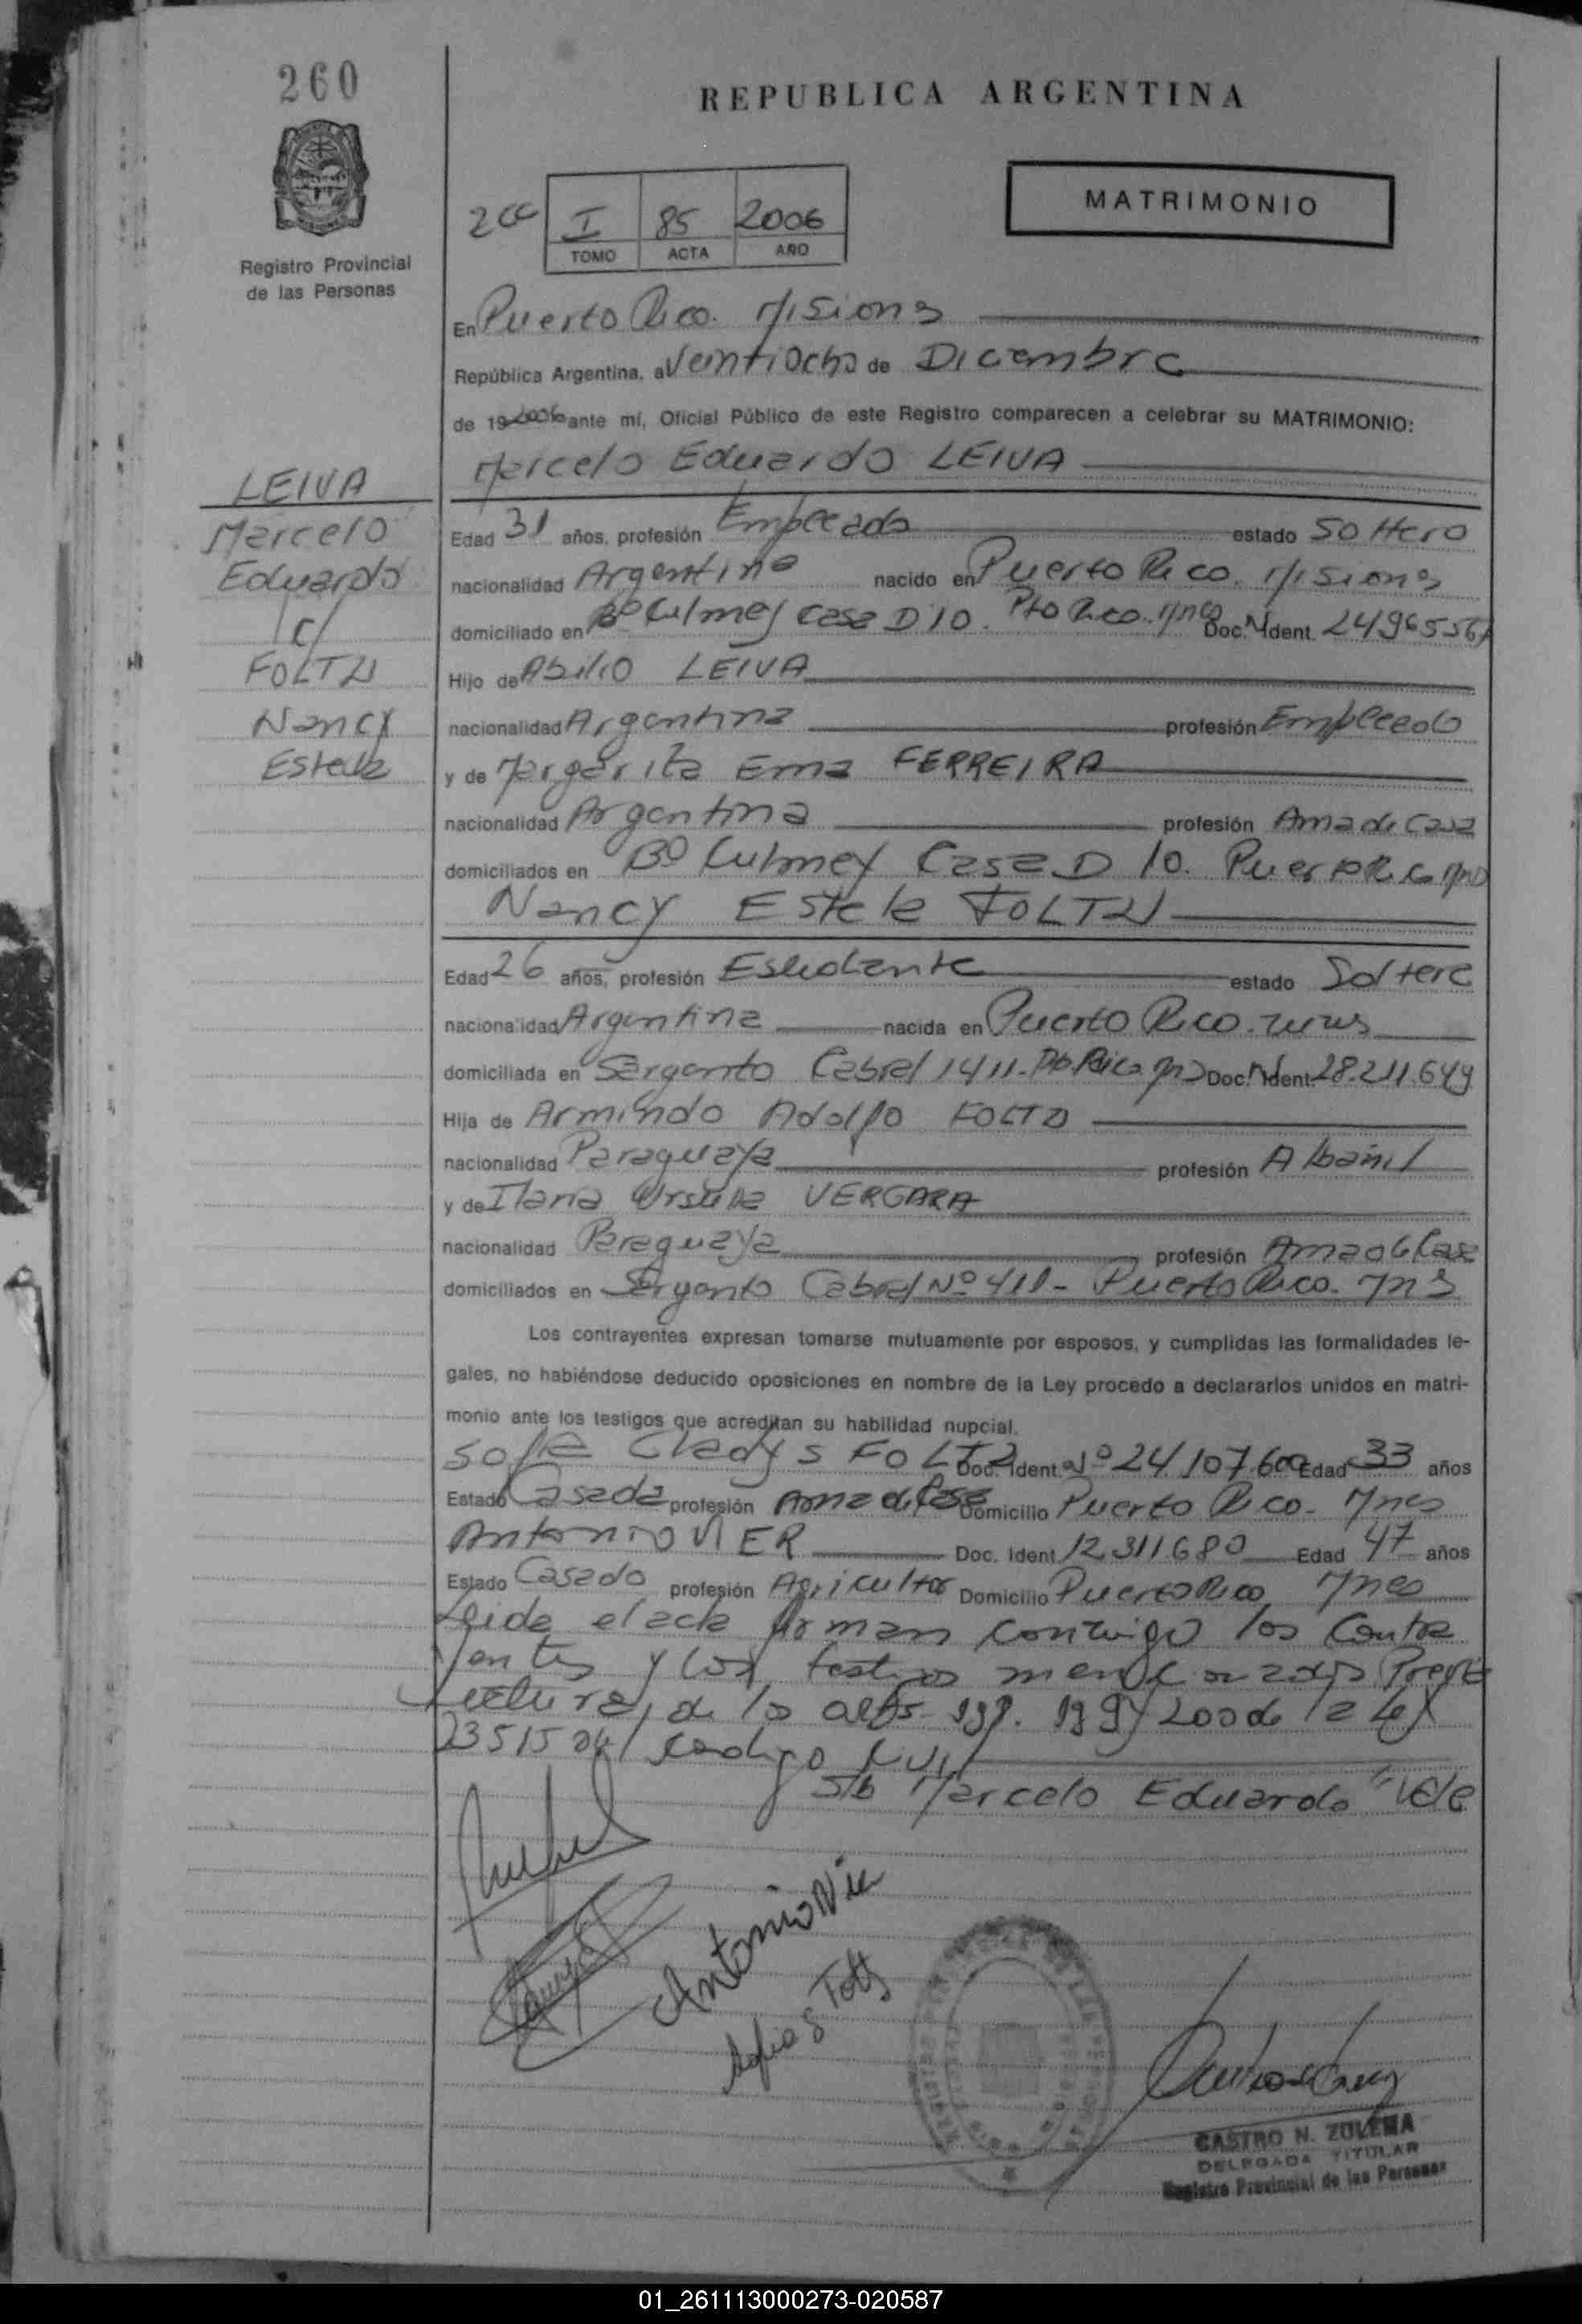 260
REPUBLICA ARGENTINA
MATRIMONIO
I 85 2006
TOMO ACTA AÑO
Registro Provincial
de las Personas
En Puerto Rico. Misiones
República Argentina, a Veintiocho de Diciembre
de 19 2006 ante mí, Oficial Público de este Registro comparecen a celebrar su MATRIMONIO:
Marcelo Eduardo LEIVA
LEIVA
Marcelo
Eduardo
c/
FOLTZ
Nancy
Estela
Edad 31 años, profesión Empleado estado Soltero
nacionalidad Argentina nacido en Puerto Rico. Misiones
domiciliado en Bº Culmey Casa D 10. Pto Rico. Mnes Doc. Ident. 24965567
Hijo de Abilio LEIVA
nacionalidad Argentina profesión Empleado
y de Margarita Ema FERREIRA
nacionalidad Argentina profesión Ama de Casa
domiciliados en Bº Culmey Casa D 10. Puerto Rico Mns
Nancy Estela FOLTZ
Edad 26 años, profesión Estudiante estado Soltera
nacionalidad Argentina nacida en Puerto Rico.
domiciliada en Sargento Cabral 1411- Pto Rico Mns Doc. Ident. 28.211.649
Hija de Armindo Adolfo FOLTZ
nacionalidad Paraguaya profesión Albañil
y de Ilaria Ursulina VERGARA
nacionalidad Paraguaya profesión Ama de Casa
domiciliados en Sargento Cabral Nº 411- Puerto Rico. Mns
Los contrayentes expresan tomarse mutuamente por esposos, y cumplidas las formalidades le-
gales, no habiéndose deducido oposiciones en nombre de la Ley procedo a declararlos unidos en matri-
monio ante los testigos que acreditan su habilidad nupcial.
Sofia Gladys FOLTZ Doc. Ident. Nº 24.107.600 Edad 33 años
Estado Casada profesión Ama de Casa Domicilio Puerto Rico. Mnes
Antonio VIER Doc. Ident. 12.311.680 Edad 47 años
Estado Casado profesión Agricultor Domicilio Puerto Rico, Mnes
Leida el acta firman conmigo los Contra
yentes y los testigos mencionados Previa
Lectura, de los arts. 198. 199 y 200 de la Ley
23515 del Codigo Civil
S/b Marcelo Eduardo Vale
Antonio Vier
Sofia G Foltz
CASTRO N. ZULEMA
DELEGADA TITULAR
Registro Provincial de las Personas
01_261113000273-020587